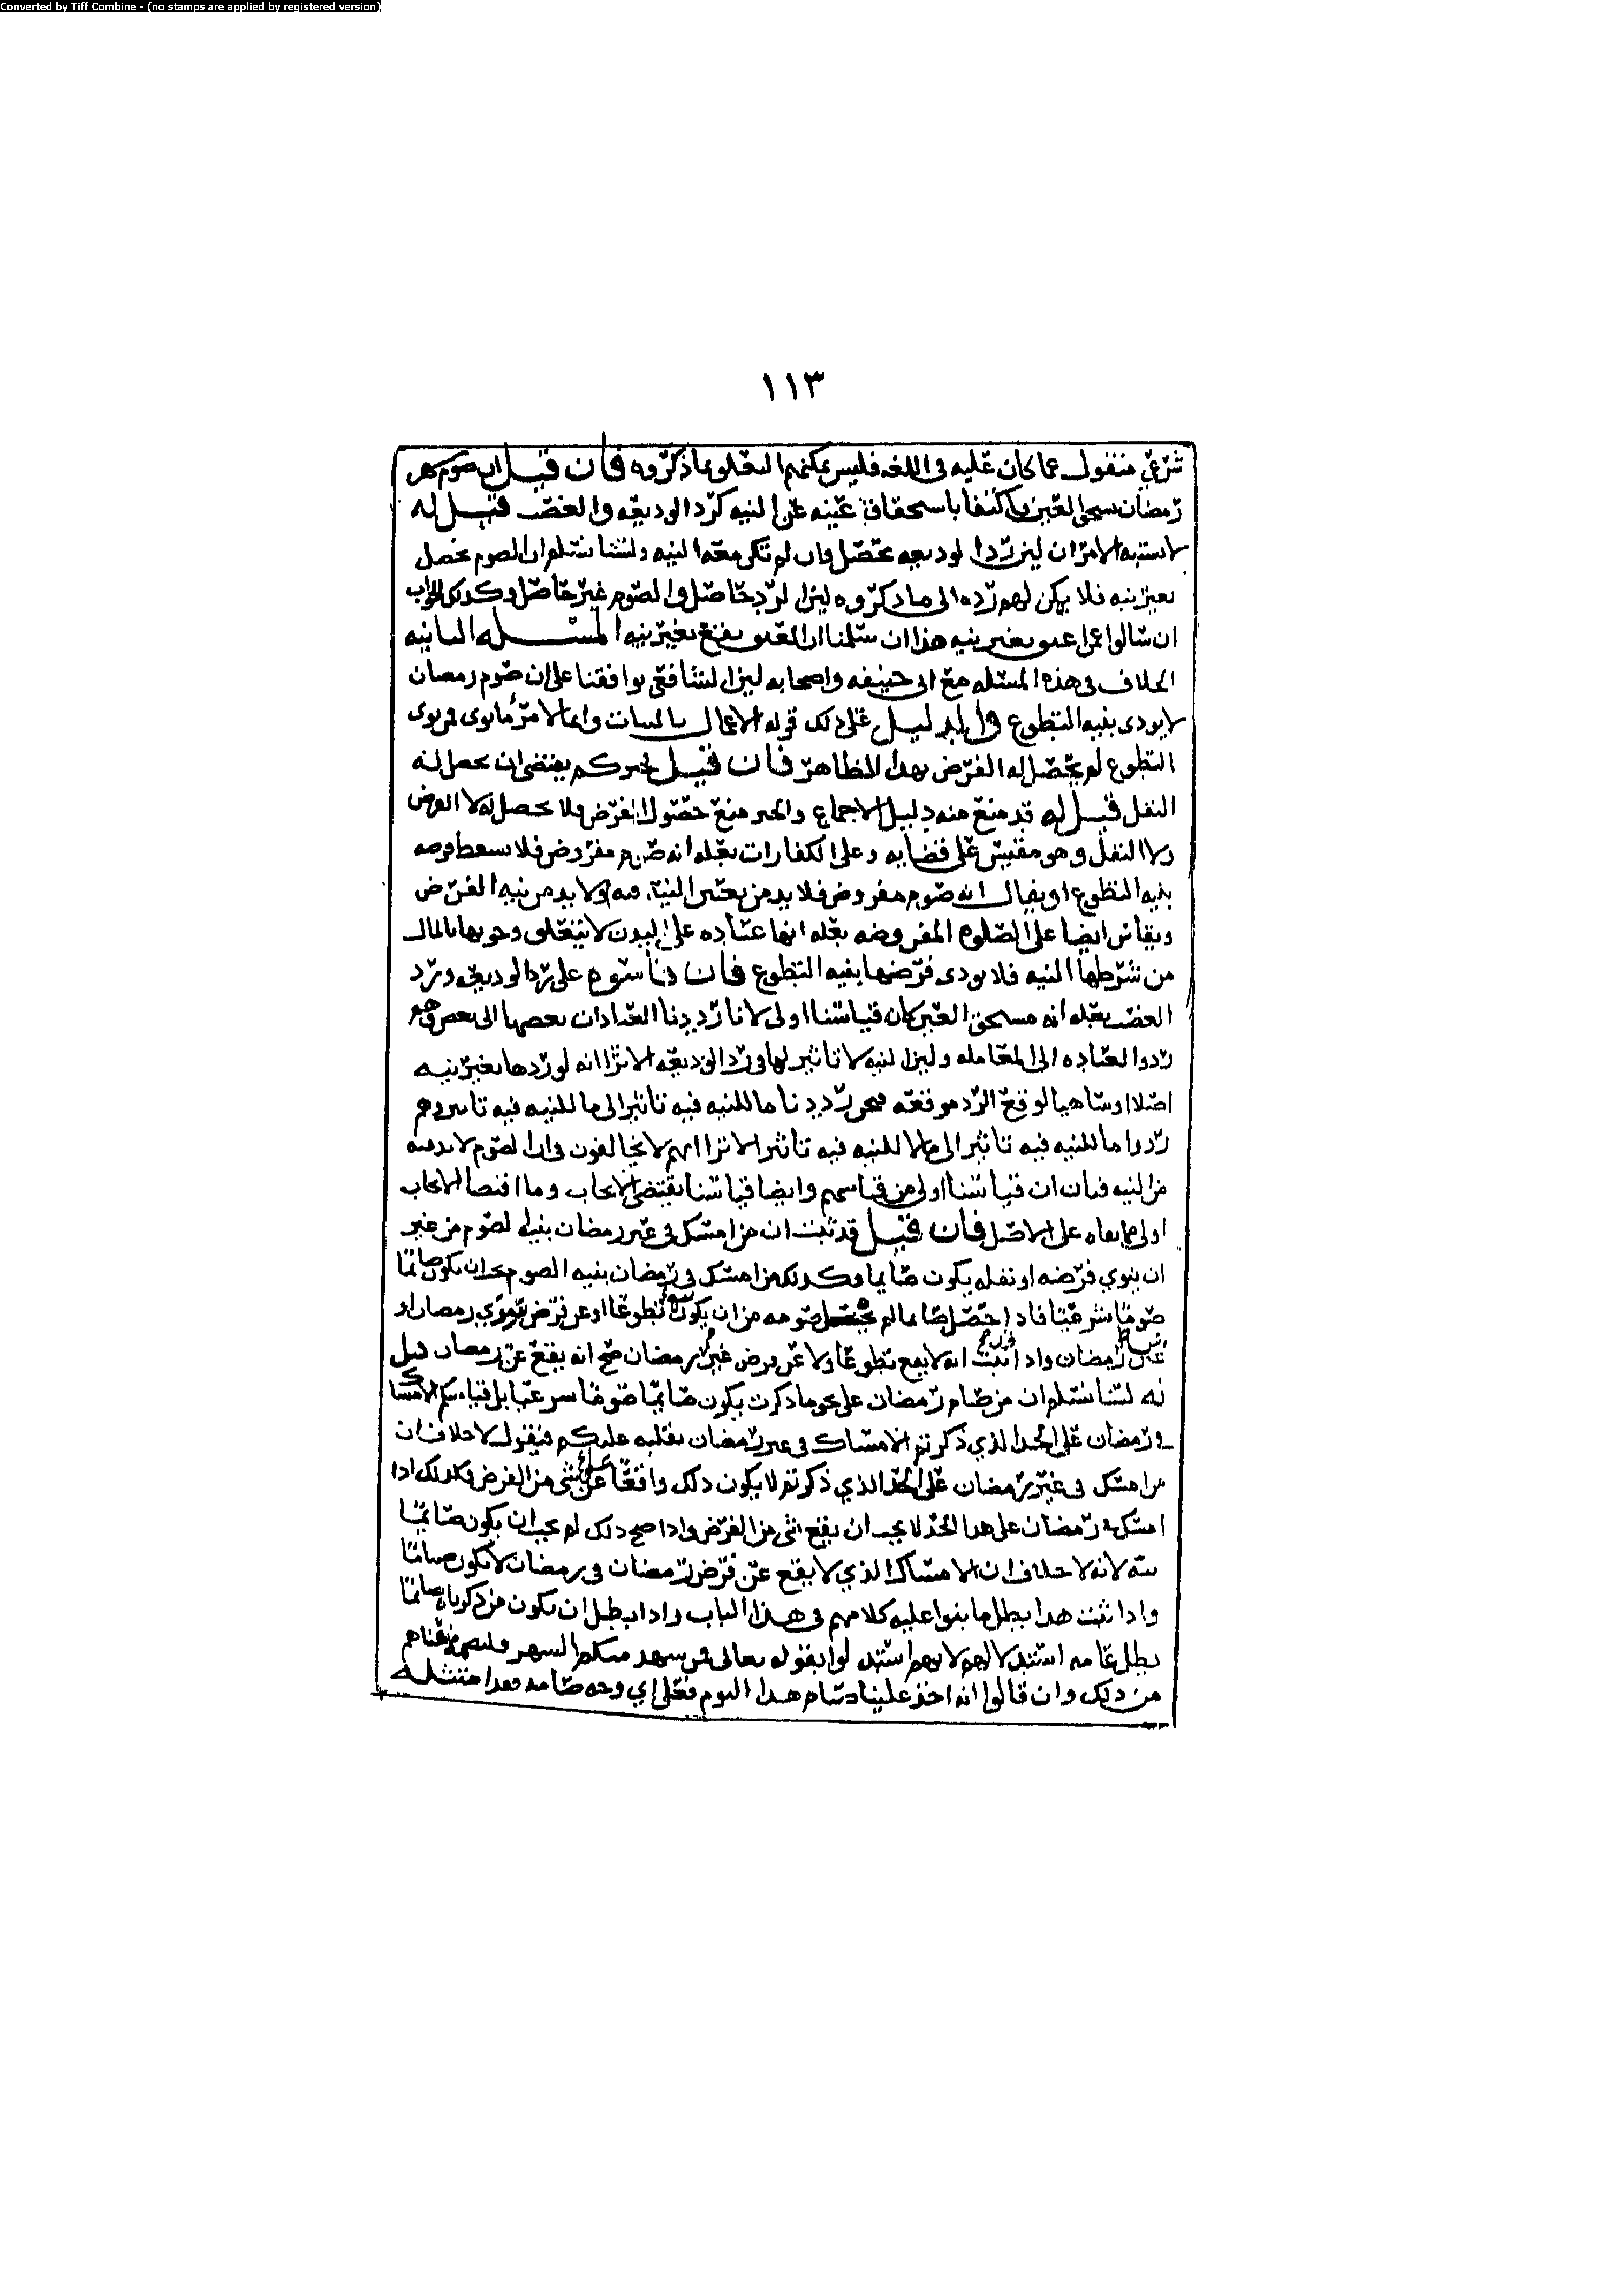 Converted by Tiff Combine - (no stamps are applied by registered version)
١١٣
شرعي منقول عما كان عليه في اللغه فليس يمكنهم التعلق بما ذكروه فان قيل ان صوم شهر
رمضان مستحق العين فاكتفا باستحقاق عينه عن النيه كرد الوديعه والغصب قيل له
لا يشتبه الامران لان رد الوديعه يحصل وان لم تكن معه النيه ولسنا نسلم ان الصوم يحصل
بغير نيه فلا يمكن لهم رده الى ما ذكروه لان الرد حاصل والصوم غير حاصل وكذلك الجواب
ان سالوا عمن اعتق بغير نيه هذا ان سلمنا ان العتق يقع بغير نيه المسئله الثانيه
الخلاف في هذه المسئله مع ابي حنيفه واصحابه لان الشافعي يوافقنا على ان صوم رمضان
لا يودى بنيه التطوع والدليل على ذلك قوله الاعمال بالنيات وانما لامرئ ما نوى فمن نوى
التطوع لم يحصل له الفرض بهذا الظاهر فان قيل خبركم يقتضي ان يحصل له
النفل قيل له قد منع منه دليل الاجماع والخبر منع حصول الفرض فلا يحصل له لا الفرض
ولا النفل وهو مقيس على قضايه وعلى الكفارات بعله انه صوم مفروض فلا يسقط فرضه
بنيه التطوع او يقال انه صوم مفروض فلا بد من يعتبر النية فيه ولا بد من نيه الفرض
ويقاس ايضا على الصلوه المفروضه بعله انها عباده على البدن لا يتعلق وجوبها بالمال
من شرطها النيه فلا يودى فرضها بنيه التطوع فان قاسوه على رد الوديعه ورد
الغصب بعله انه مستحق العين كان قياسنا اولى لانا رددنا العبادات بعضها الى بعض وهم
ردوا العباده الى المعامله ولان النيه لا تاثير لها في رد الوديعه الا ترا انه لو ردها بغير نيه
اصلا او ساهيا لوقع الرد موقعه فنحن رددنا ما للنيه فيه تاثير الى ما للنيه فيه تاثير وهم
ردوا ما للنيه فيه تاثير الى ما لا للنيه فيه تاثير الا ترا انهم لا يخالفون في ان الصوم لا بد فيه
من النيه فبان ان قياسنا اولى من قياسهم وايضا قياسنا يقتضي الايجاب وما اقتضا الايجاب
اولى مما بقاه على الاصل فان قيل قد ثبت ان من امسك في غير رمضان بنيه الصوم من غير
ان ينوي فرضه او نفله يكون صايما وكذلك من امسك في رمضان بنيه الصوم يجب ان يكون صائما
صوما شرعيا فاذا حصل صايما لم صومه من ان يكون تطوعا او عن فرض سوى رمضان او
عن رمضان واذا ثبت انه لا يقع تطوعا ولا عن فرض غير رمضان صح انه يقع عن رمضان قيل
له لسنا نسلم ان من صام رمضان على نحو ما ذكرت يكون صايما صوما شرعيا بل قياسكم الامساك
في رمضان على الحد الذي ذكرتم الامساك في غير رمضان نقلبه عليكم فنقول لا خلاف ان
من امسك في غير رمضان على الحد الذي ذكرتم لا يكون ذلك واقعا عن شي من الفرض فكذلك اذا
امسك في رمضان على هذا الحد لا يجب ان يقع شي من الفرض واذا صح ذلك لم يجب ان يكون صايما
لانه لا خلاف ان الامساك الذي لا يقع عن فرض رمضان في رمضان لا يكون صياما
واذا ثبت هذا بطل ما بنوا عليه كلامهم في هذا الباب واذا بطل ان يكون من ذكرناه صائما
بطل عامه استدلالهم لانهم استدلوا بقوله تعالى فمن شهد منكم الشهر فليصمه
من ذلك وان قالوا انه اخذ علينا صيام هذا اليوم فعلى اي وجه صامه فقد امتثله